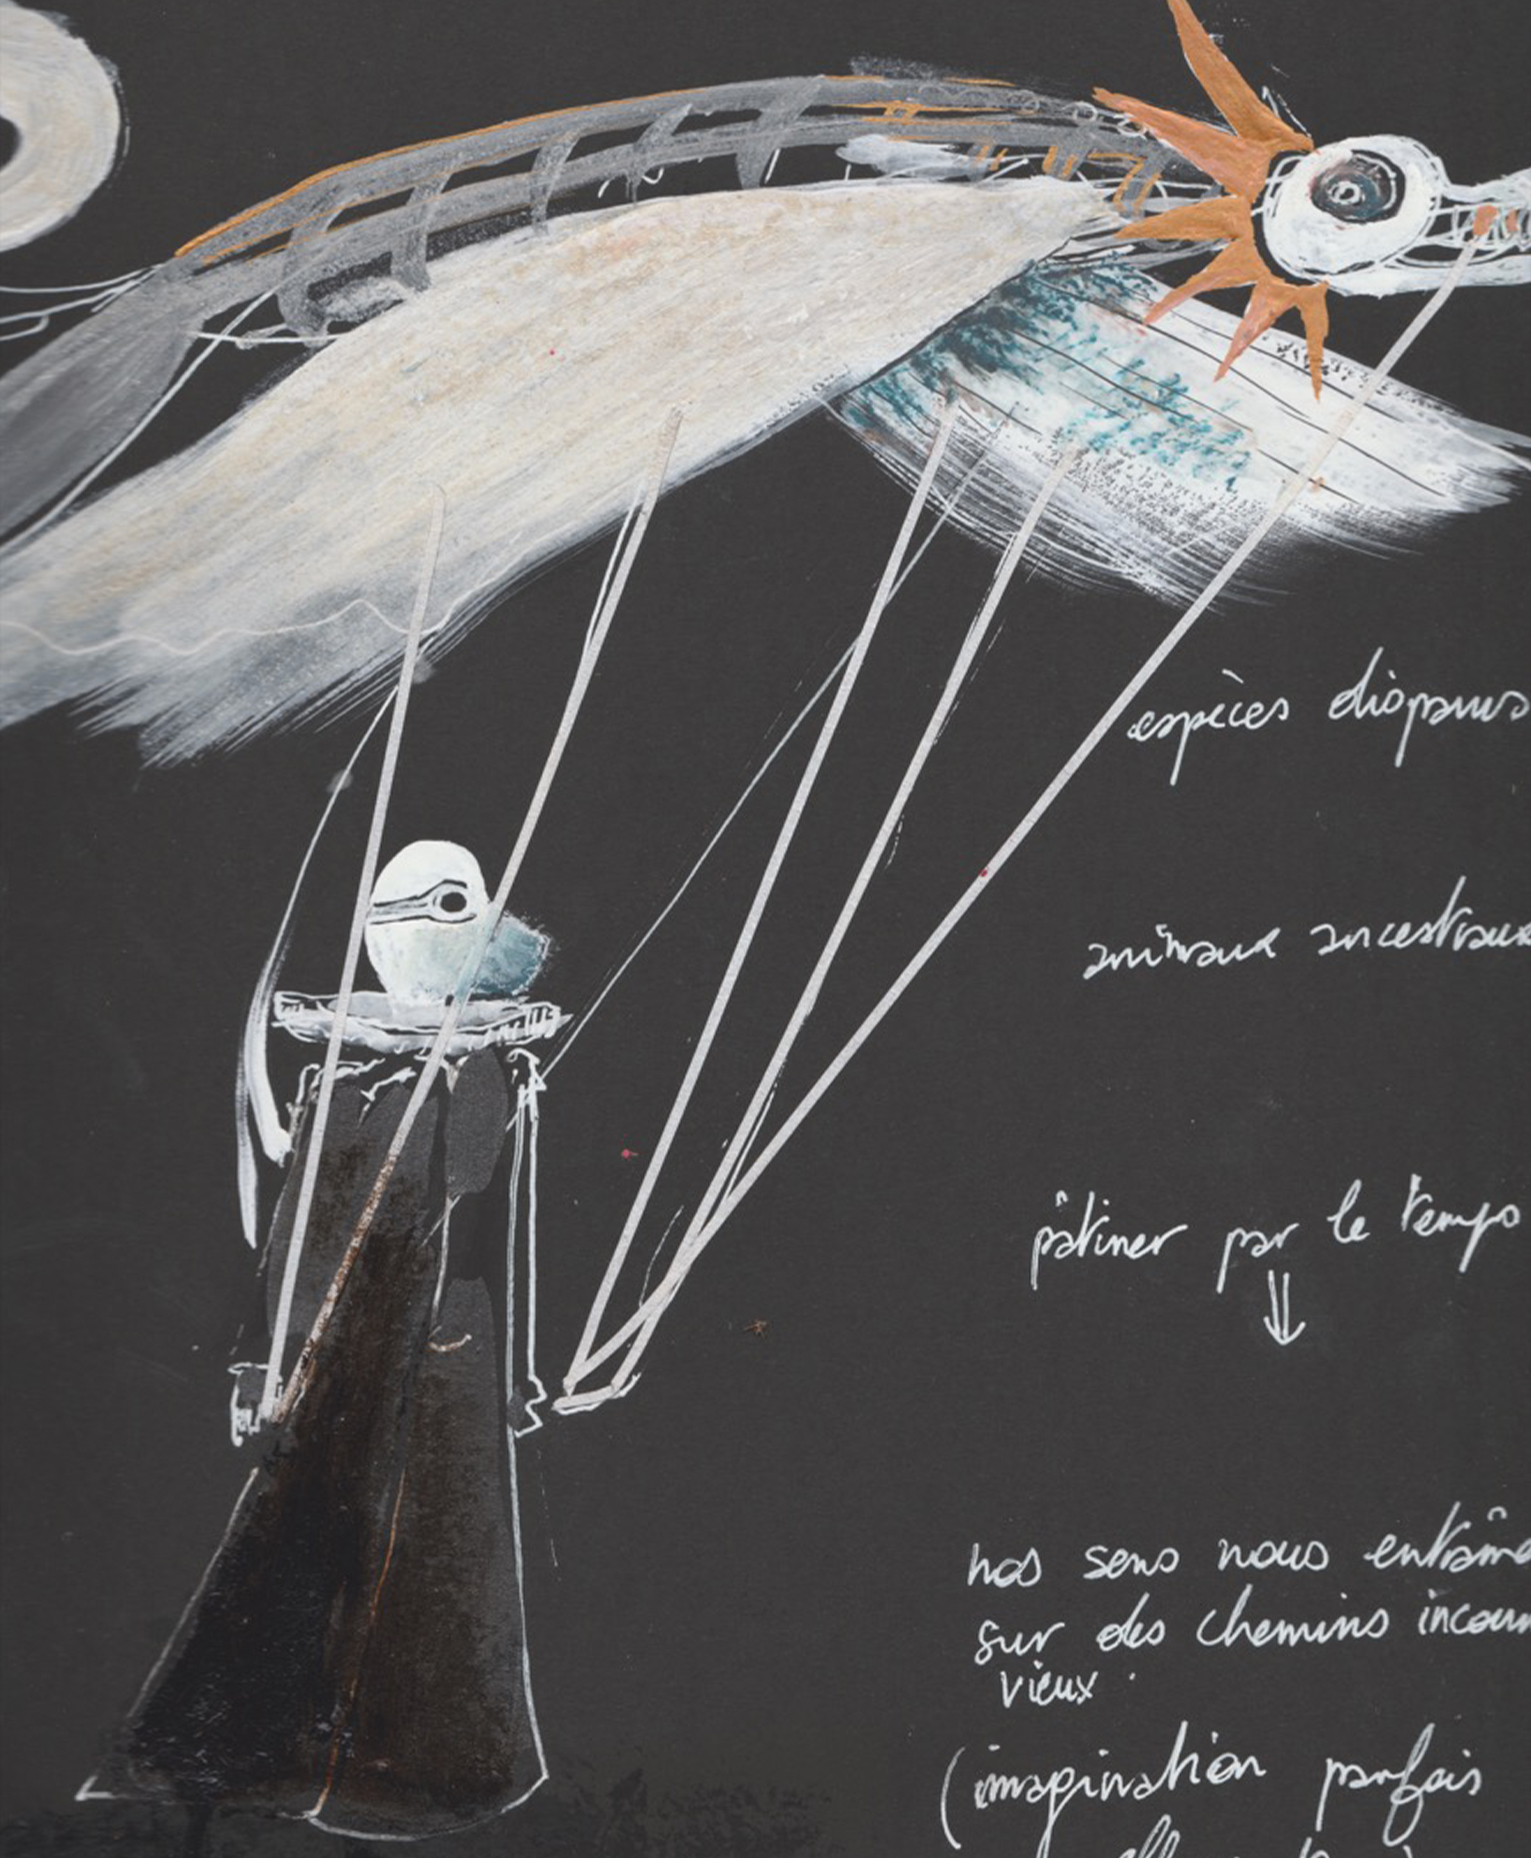 espèces disparus
animaux ancestraux
pâtiner par le temps
nos sens nous entraîne
sur des chemins incon
vieux
(imagination parfois